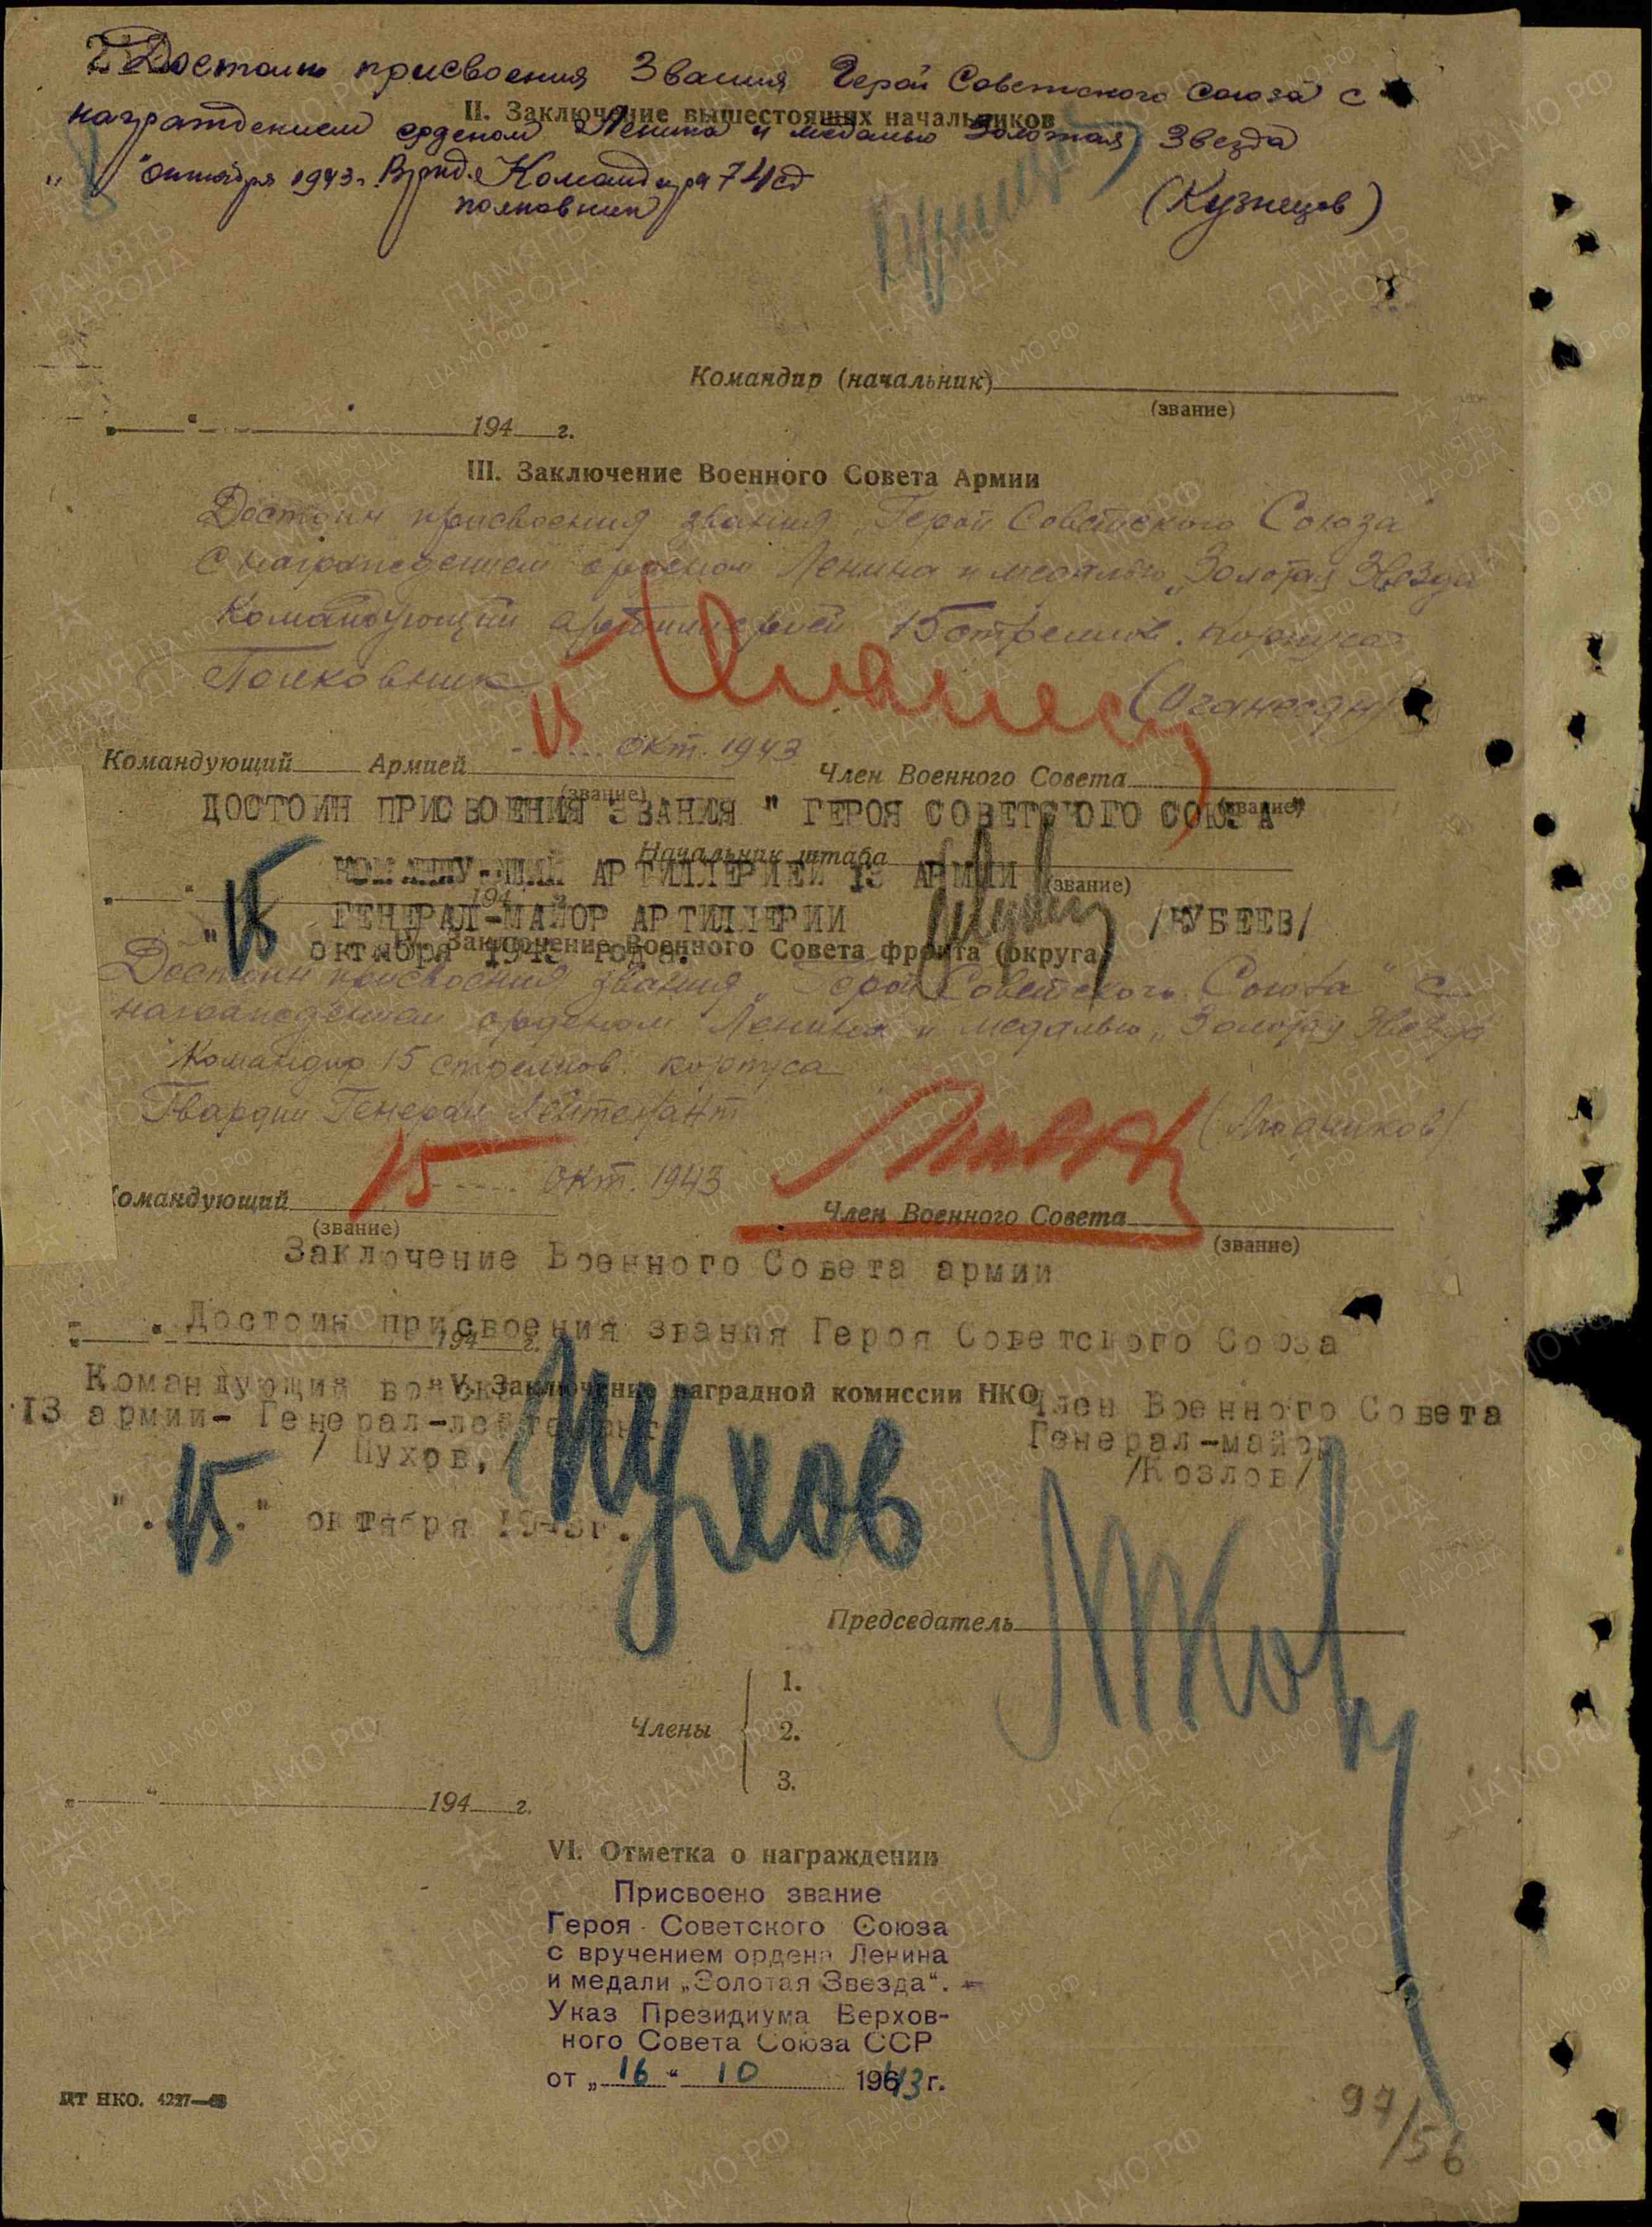 Достоин присвоения Звания Герой Советского Союза с
II. Заключение вышестоящих начальников
награждением орденом Ленина и медалью Золотая Звезда
" " октября 1943 г. Врид. Командира 74 сд
полковник (Кузнецов)
Командир (начальник)
(звание)
194 г.
III. Заключение Военного Совета Армии
Достоин присвоения звания „Герой Советского Союза"
с награждением орденом Ленина и медалью „Золотая Звезда
Командующий артиллерией 15 стрелков. корпуса
Полковник (Оганесян)
15 окт. 1943
Командующий Армией Член Военного Совета
(звание) (звание)
ДОСТОИН ПРИСВОЕНИЯ ЗВАНИЯ " ГЕРОЯ СОВЕТСКОГО СОЮЗА"
Начальник штаба
КОМАНДУЮЩИЙ АРТИЛЛЕРИЕЙ 13 АРМИИ
(звание)
194
ГЕНЕРАЛ-МАЙОР АРТИЛЛЕРИИ /КУБЕЕВ/
"15 октября 1943 года.
IV. Заключение Военного Совета фронта (округа)
Достоин присвоения звания „Герой Советского Союза" с
награждением орденом Ленина и медалью „Золотая Звезда
Командир 15 стрелков. корпуса
Гвардии Генерал Лейтенант (Людников)
15 окт. 1943
Командующий Член Военного Совета
(звание) (звание)
Заключение Военного Совета армии
Достоин присвоения звания Героя Советского Союза
194 г.
Командующий войсками
V. Заключение наградной комиссии НКО
Член Военного Совета
13 армии- Генерал-лейтенант Генерал-майор
/ Пухов,/ /Козлов/
Пухов
".15." октября 1943г.
Председатель
1.
Члены 2.
3.
194 г.
VI. Отметка о награждении
Присвоено звание
Героя Советского Союза
с вручением ордена Ленина
и медали „Золотая Звезда“.
Указ Президиума Верхов-
ного Совета Союза ССР
от „ 16 “ 10 1943 г.
ЦТ НКО. 4227—
97/56
ПАМЯТЬ НАРОДА
ЦАМО.РФ